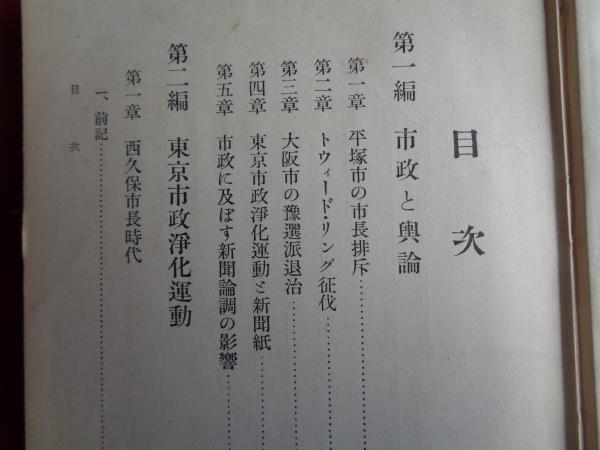 目次
第一編 市政と輿論
第一章 平塚市の市長排斥…………
第二章 トウィード・リング征伐…………
第三章 大阪市の豫選派退治…………
第四章 東京市政淨化運動と新聞紙…………
第五章 市政に及ぼす新聞論調の影響…………
第二編 東京市政淨化運動
第一章 西久保市長時代
一、前記…………
目次